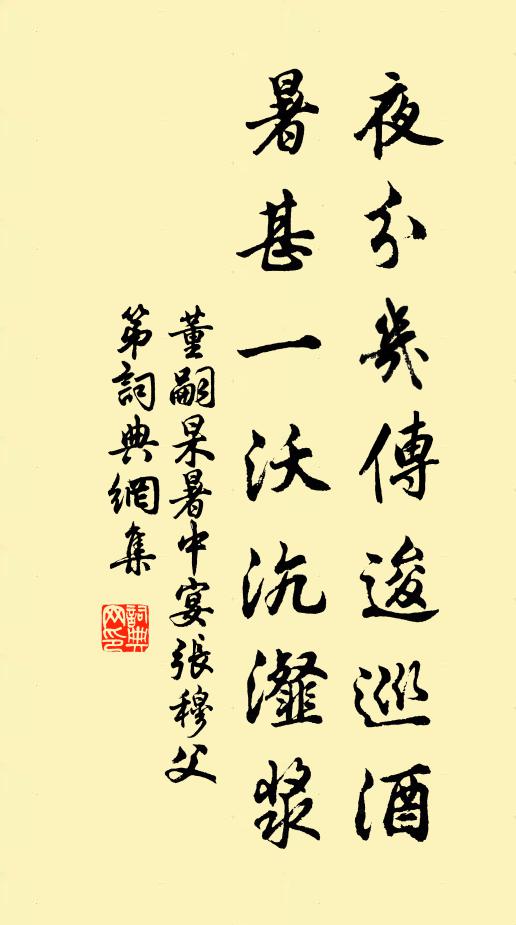 夜分幾傳逡巡酒
暑甚一沃沆瀣漿
董嗣杲暑中宴張穆父
第詞典網集
詞典網印